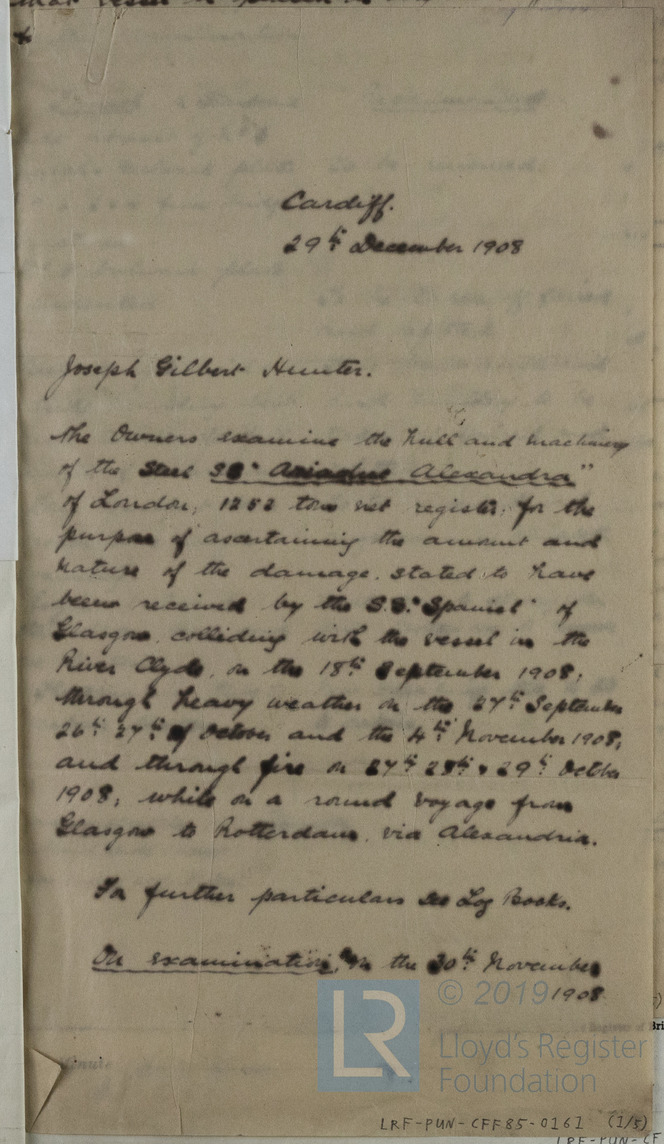 Cardiff.
29th December 1908
Joseph Gilbert Hunter.
the Owners examine the hull and machinery
of the Steel SS" Ariadne Alexandra"
of London, 1252 tons net register, for the
purpose of ascertaining the amount and
nature of the damage stated to have
been received by the S.S. "Spaniel" of
Glasgow colliding with the vessel in the
River Clyde, on the 18th September 1908;
through heavy weather on the 27th September
26th 27th of October and the 4th November 1908;
and through fire on 27th 28th & 29th October
1908; while on a round voyage from
Glasgow to Rotterdam, via Alexandria.
For further particulars see Log Books.
On examination, on the 30th November
1908
LR © 2019
Lloyd's Register
Foundation
LRF-PUN-CFF85-0161 (1/5)